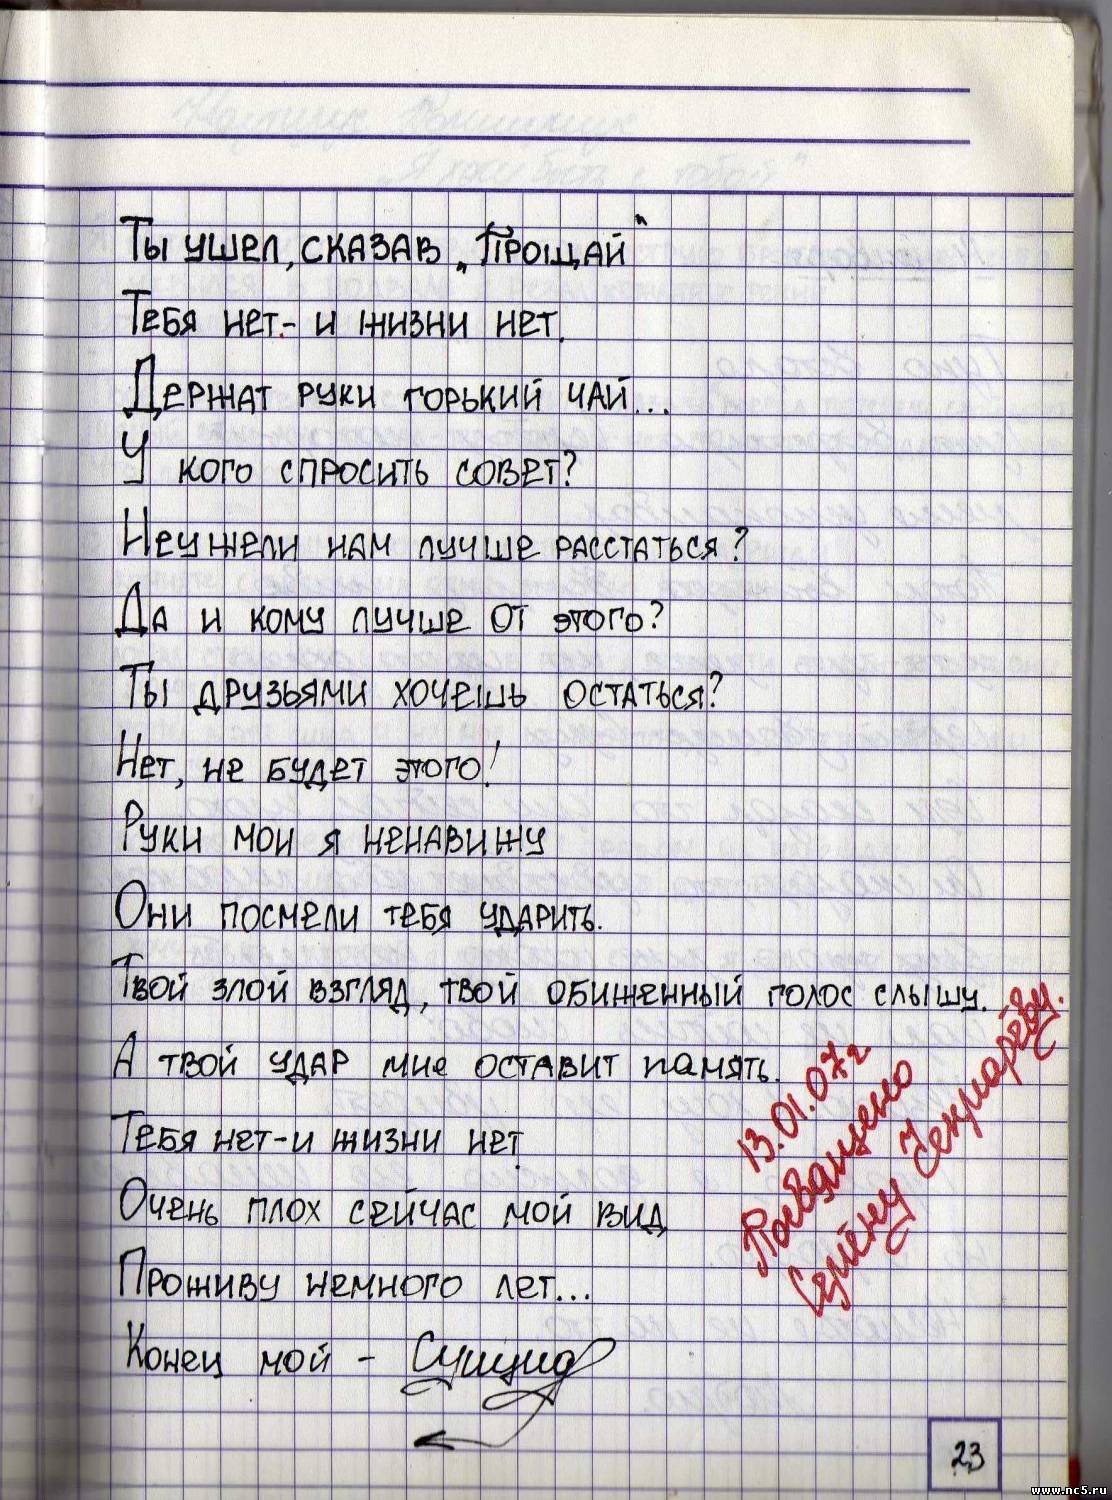 Ты ушел, сказав „Прощай"
Тебя нет - и жизни нет.
Держат руки горький чай...
У кого спросить совет?
Неужели нам лучше расстаться?
Да и кому лучше от этого?
Ты друзьями хочешь остаться?
Нет, не будет этого!
Руки мои я ненавижу
Они посмели тебя ударить.
Твой злой взгляд, твой обиженный голос слышу.
А твой удар мне оставит память.
Тебя нет - и жизни нет
Очень плох сейчас мой вид
Проживу немного лет...
Конец мой - Суицид
13.01.07г.
Посвящено
23
www.nc5.ru